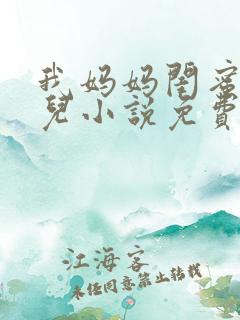 我妈妈閏蜜
兒小説免費
江海客
未经同意禁止转载